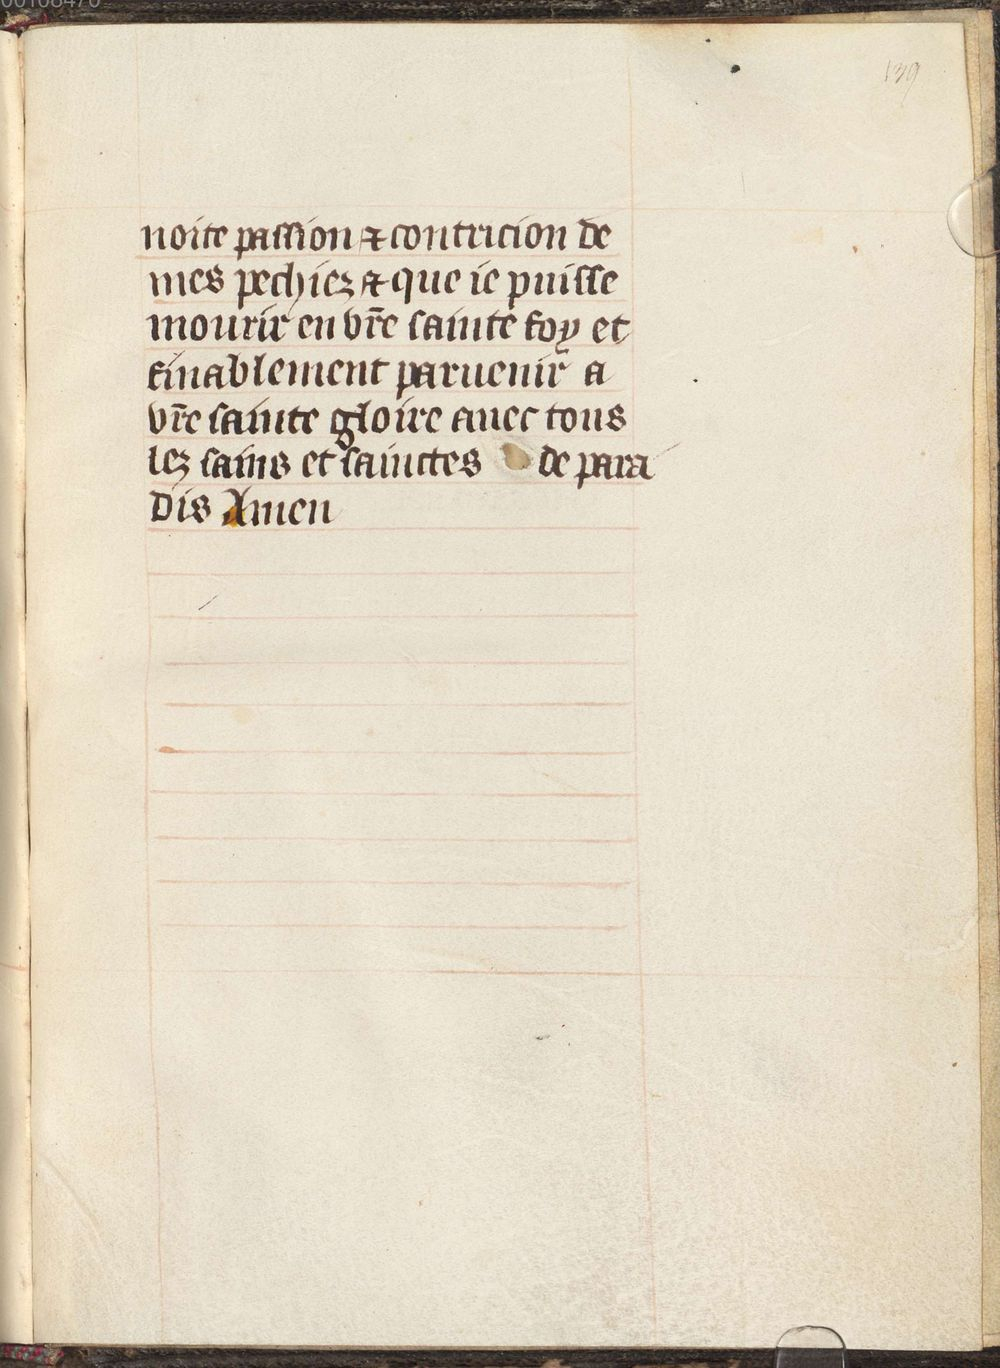 139
noite passion ⁊ contricion de
mes pechiez ⁊ que ie puisse
mourir en vr̃e sainte foy et
finablement paruenir a
vr̃e sainte gloire auec tous
lez sains et sainctes de para
dis Amen